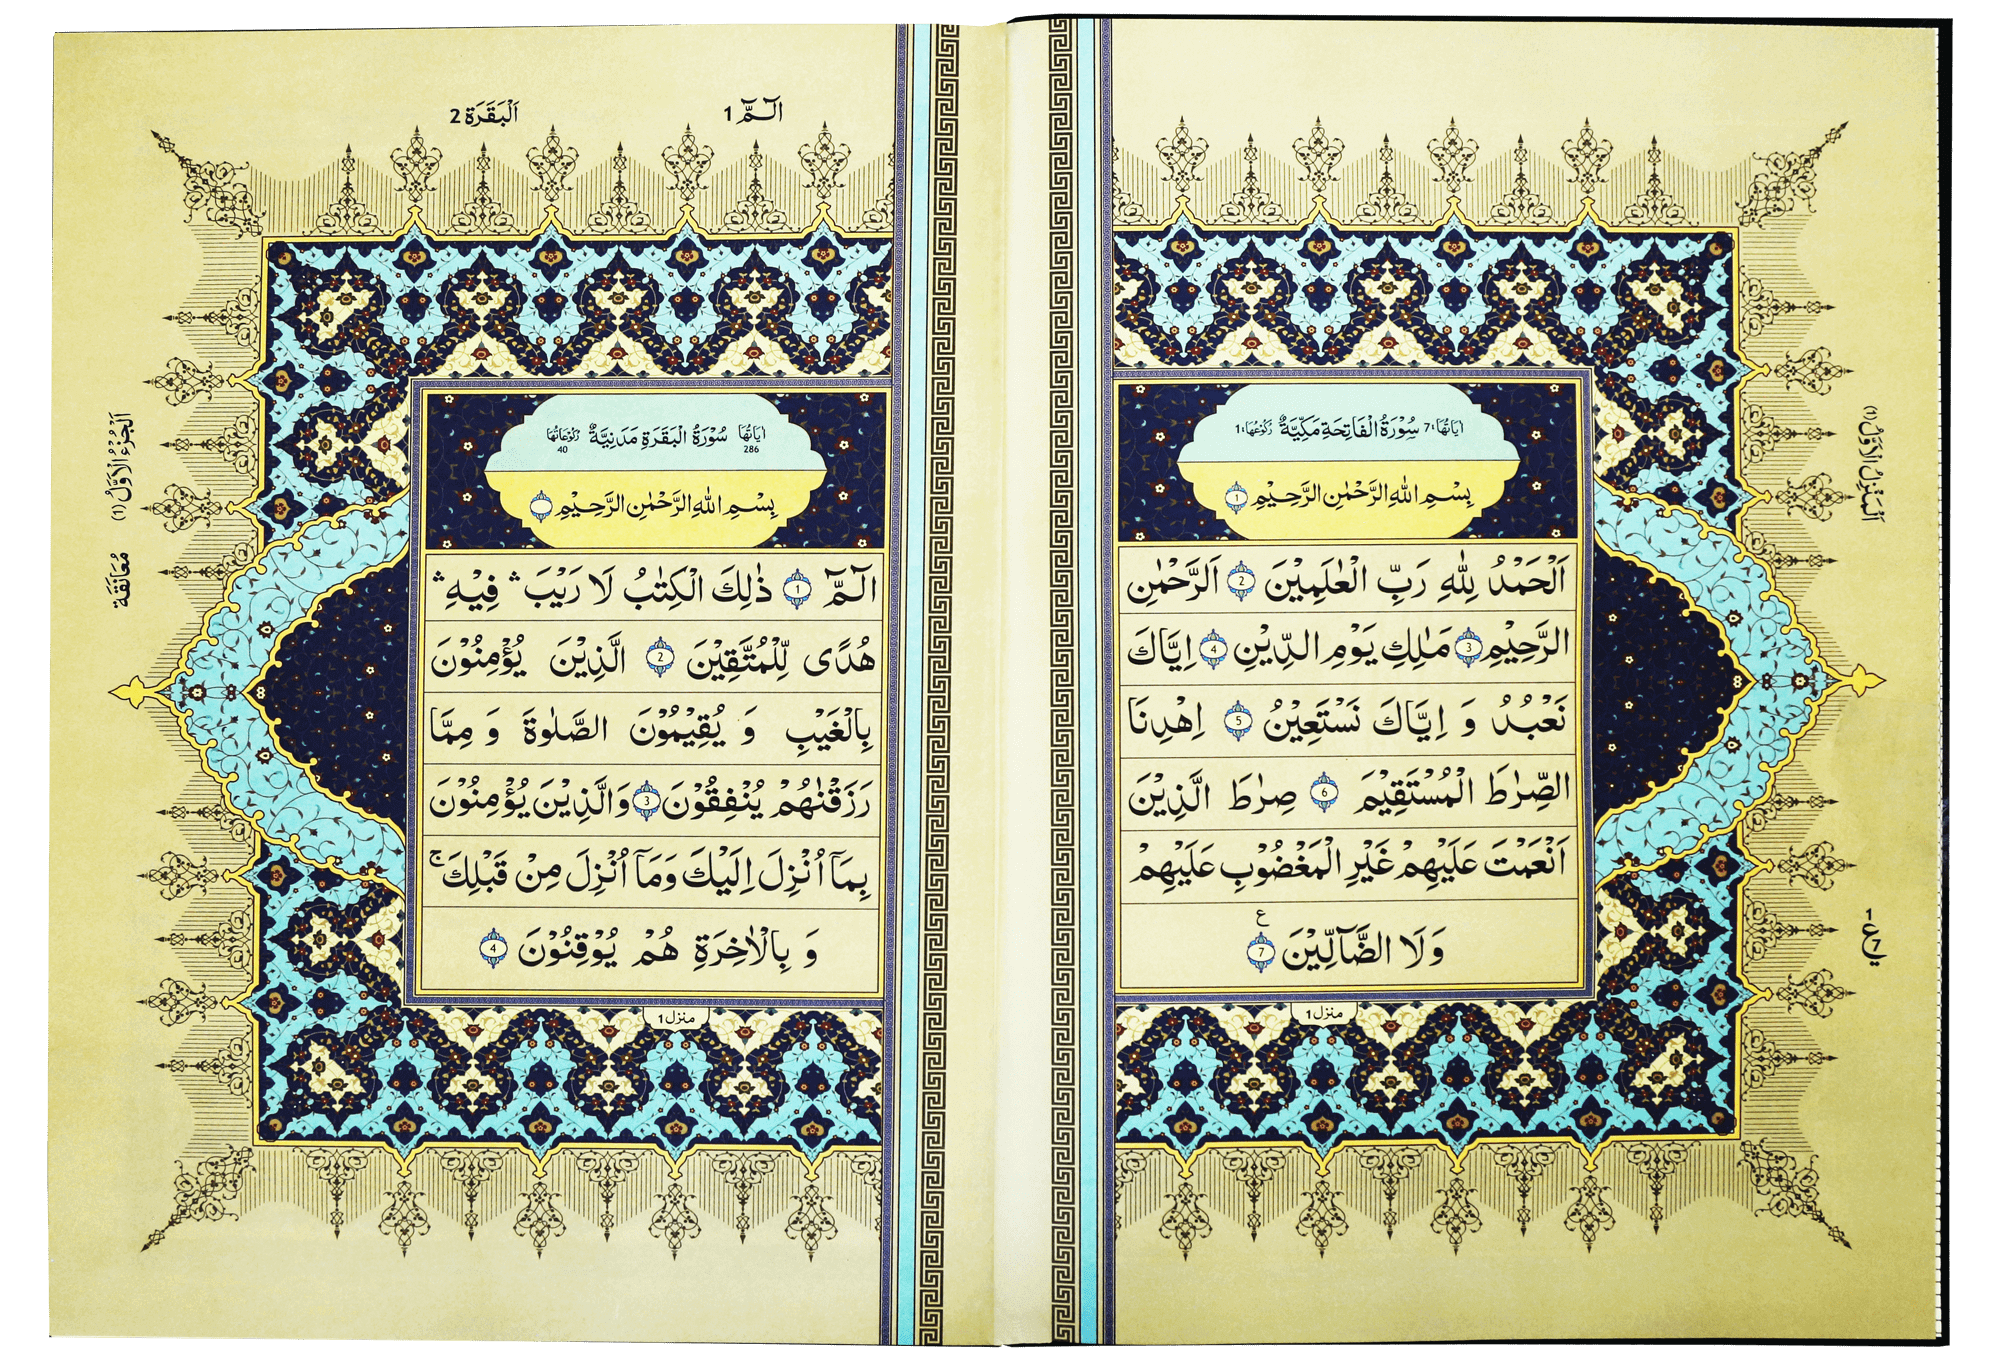 اٰيَاتُهَا: 7 سُوْرَةُ الْفَاتِحَةِ مَكِّيَّةٌ رُكُوْعُهَا: 1
بِسْمِ اللّٰهِ الرَّحْمٰنِ الرَّحِيْمِ 1
اَلْحَمْدُ لِلّٰهِ رَبِّ الْعٰلَمِيْنَ 2 اَلرَّحْمٰنِ
الرَّحِيْمِ 3 مٰلِكِ يَوْمِ الدِّيْنِ 4 اِيَّاكَ
نَعْبُدُ وَ اِيَّاكَ نَسْتَعِيْنُ 5 اِهْدِنَا
الصِّرٰطَ الْمُسْتَقِيْمَ 6 صِرٰطَ الَّذِيْنَ
اَنْعَمْتَ عَلَيْهِمْ غَيْرِ الْمَغْضُوْبِ عَلَيْهِمْ
وَلَا الضَّآلِّيْنَ 7 ع
منزل 1
اَلْمَنْزِلُ الْاَوَّلُ (1)
1 ع 7
الٓـمّٓ 1
اَلْبَقَرَة 2
اٰيَاتُهَا 286 سُوْرَةُ الْبَقَرَةِ مَدَنِيَّةٌ رُكُوْعَاتُهَا 40
بِسْمِ اللّٰهِ الرَّحْمٰنِ الرَّحِيْمِ
الٓـمّٓ 1 ذٰلِكَ الْكِتٰبُ لَا رَيْبَ ۛ فِيْهِ ۛ
هُدًى لِّلْمُتَّقِيْنَ 2 الَّذِيْنَ يُؤْمِنُوْنَ
بِالْغَيْبِ وَ يُقِيْمُوْنَ الصَّلٰوةَ وَ مِمَّا
رَزَقْنٰهُمْ يُنْفِقُوْنَ 3 وَالَّذِيْنَ يُؤْمِنُوْنَ
بِمَآ اُنْزِلَ اِلَيْكَ وَمَآ اُنْزِلَ مِنْ قَبْلِكَ ۚ
وَ بِالْاٰخِرَةِ هُمْ يُوْقِنُوْنَ 4
منزل 1
اَلْجُزْءُ الْاَوَّلُ (1)
مُعَانَقَة